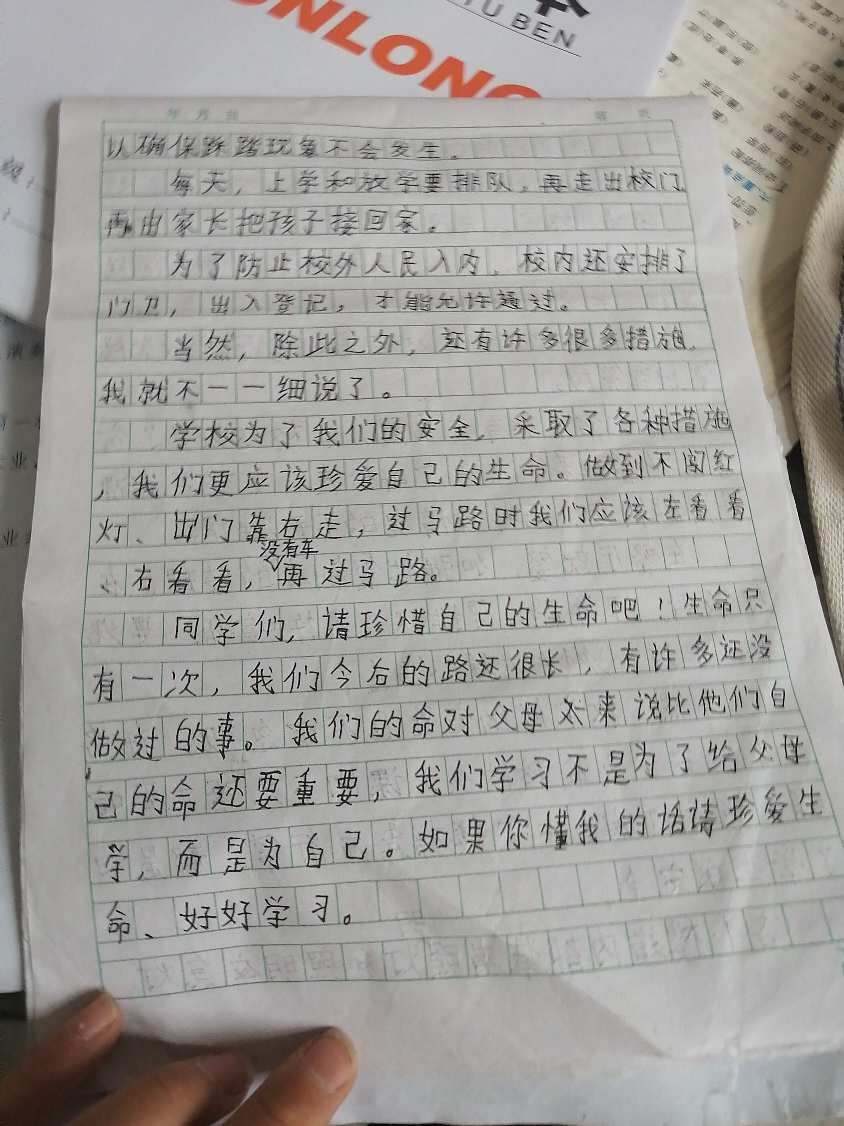 IU BEN
ONLONG
年 月 日
以确保踩踏现象不会发生。
每天，上学和放学要排队，再走出校门，
再由家长把孩子接回家。
为了防止校外人民入内，校内还安排了
门卫，出入登记，才能允许通过。
当然，除此之外，还有许多很多措施，
我就不一一细说了。
学校为了我们的安全，采取了各种措施
，我们更应该珍爱自己的生命。做到不闯红
灯、出门靠右走，过马路时我们应该左看看
没有车
、右看看，再过马路。
同学们，请珍惜自己的生命吧！生命只
有一次，我们今后的路还很长，有许多还没
做过的事。我们的命对父母来说比他们自
己的命还要重要，我们学习不是为了给父母
学，而是为自己。如果你懂我的话请珍爱生
命、好好学习。